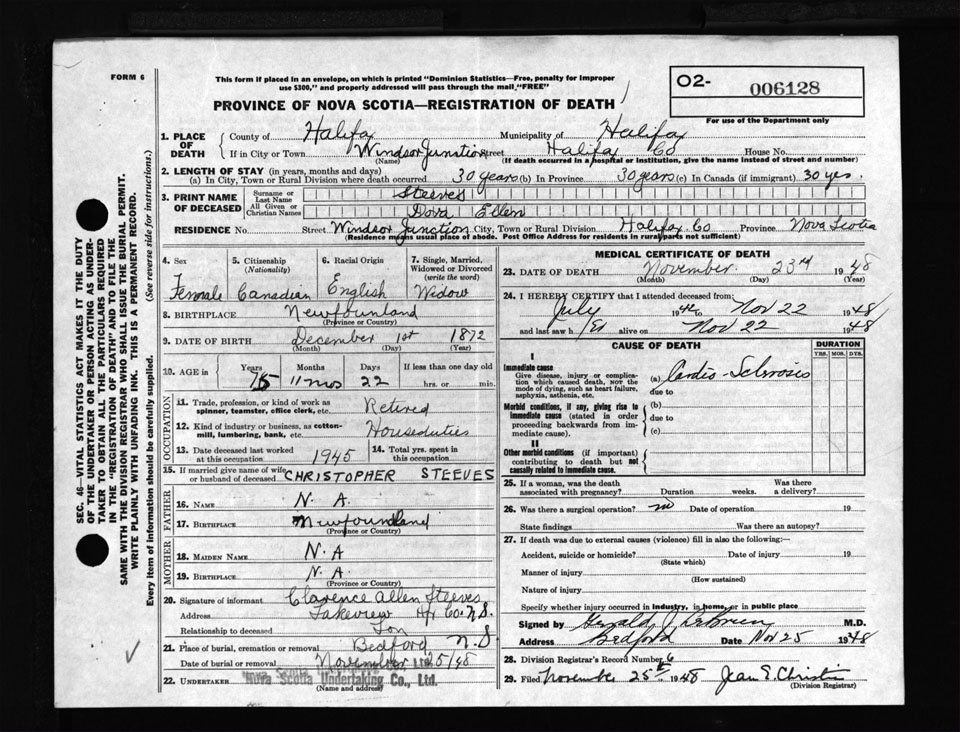 FORM 6
This form if placed in an envelope, on which is printed "Dominion Statistics—Free, penalty for improper
use $300," and properly addressed will pass through the mail "FREE"
O2- 006128
For use of the Department only
PROVINCE OF NOVA SCOTIA—REGISTRATION OF DEATH
1. PLACE OF DEATH
County of Halifax Municipality of Halifax
If in City or Town Windsor Junction Street Halifax Co House No.
(Name) (If death occurred in a hospital or institution, give the name instead of street and number)
2. LENGTH OF STAY (in years, months and days)
(a) In City, Town or Rural Division where death occurred 30 years (b) In Province 30 years (c) In Canada (if immigrant) 30 yrs.
3. PRINT NAME OF DECEASED
Surname or Last Name Steeves
All Given or Christian Names Dora Ellen
RESIDENCE No. Street Windsor Junction City, Town or Rural Division Halifax Co Province Nova Scotia
(Residence means usual place of abode. Post Office Address for residents in rural parts not sufficient)
4. Sex 5. Citizenship (Nationality) 6. Racial Origin 7. Single, Married, Widowed or Divorced (write the word)
Female Canadian English Widow
8. BIRTHPLACE Newfounland
(Province or Country)
9. DATE OF BIRTH December 1st 1872
(Month) (Day) (Year)
10. AGE in Years Months Days If less than one day old
75 11 mos 22 hrs. or min.
OCCUPATION
11. Trade, profession, or kind of work as
spinner, teamster, office clerk, etc. Retired
12. Kind of industry or business, as cotton-
mill, lumbering, bank, etc. Houseduties
13. Date deceased last worked at this occupation 1945 14. Total yrs. spent in this occupation
15. If married give name of wife or husband of deceased CHRISTOPHER STEEVES
FATHER
16. NAME N. A.
17. BIRTHPLACE Newfoundland
(Province or Country)
MOTHER
18. MAIDEN NAME N. A
19. BIRTHPLACE N. A.
(Province or Country)
20. Signature of informant Clarence Allen Steeves
Address Lakeview Hfx Co. N.S.
Relationship to deceased Son
21. Place of burial, cremation or removal Bedford N.S
Date of burial or removal November 25/48
22. UNDERTAKER Nova Scotia Undertaking Co., Ltd.
(Name and address)
MEDICAL CERTIFICATE OF DEATH
23. DATE OF DEATH November 23rd 1948
(Month) (Day) (Year)
24. I HEREBY CERTIFY that I attended deceased from:
July 19 to Nov 22 1948
and last saw her alive on Nov 22 1948
CAUSE OF DEATH DURATION
YRS. MOS. DYS.
I
Immediate cause
Give disease, injury or complica-
tion which caused death, NOT the
mode of dying, such as heart failure,
asphyxia, asthenia, etc.
(a) Cardio-Sclerosis
due to
Morbid conditions, if any, giving rise to
immediate cause (stated in order
proceeding backwards from im-
mediate cause).
(b)
due to
(c)
II
Other morbid conditions (if important)
contributing to death but not
causally related to immediate cause.
25. If a woman, was the death
associated with pregnancy? Duration weeks. Was there a delivery?
26. Was there a surgical operation? no Date of operation 19
State findings Was there an autopsy?
27. If death was due to external causes (violence) fill in also the following:—
Accident, suicide or homicide? Date of injury 19
(State which)
Manner of injury
(How sustained)
Nature of injury
Specify whether injury occurred in industry, in home, or in public place
Signed by Gerald J. LeBrun M.D.
Address Bedford Date Nov 25 1948
28. Division Registrar's Record Number 6
29. Filed November 25th 1948 Jean E. Christie
(Division Registrar)
SEC. 46—VITAL STATISTICS ACT MAKES IT THE DUTY
OF THE UNDERTAKER OR PERSON ACTING AS UNDER-
TAKER TO OBTAIN ALL THE PARTICULARS REQUIRED
IN THE "REGISTRATION OF DEATH" AND TO FILE THE
SAME WITH THE DIVISION REGISTRAR WHO SHALL ISSUE THE BURIAL PERMIT.
WRITE PLAINLY WITH UNFADING INK. THIS IS A PERMANENT RECORD.
Every item of information should be carefully supplied. (See reverse side for instructions.)